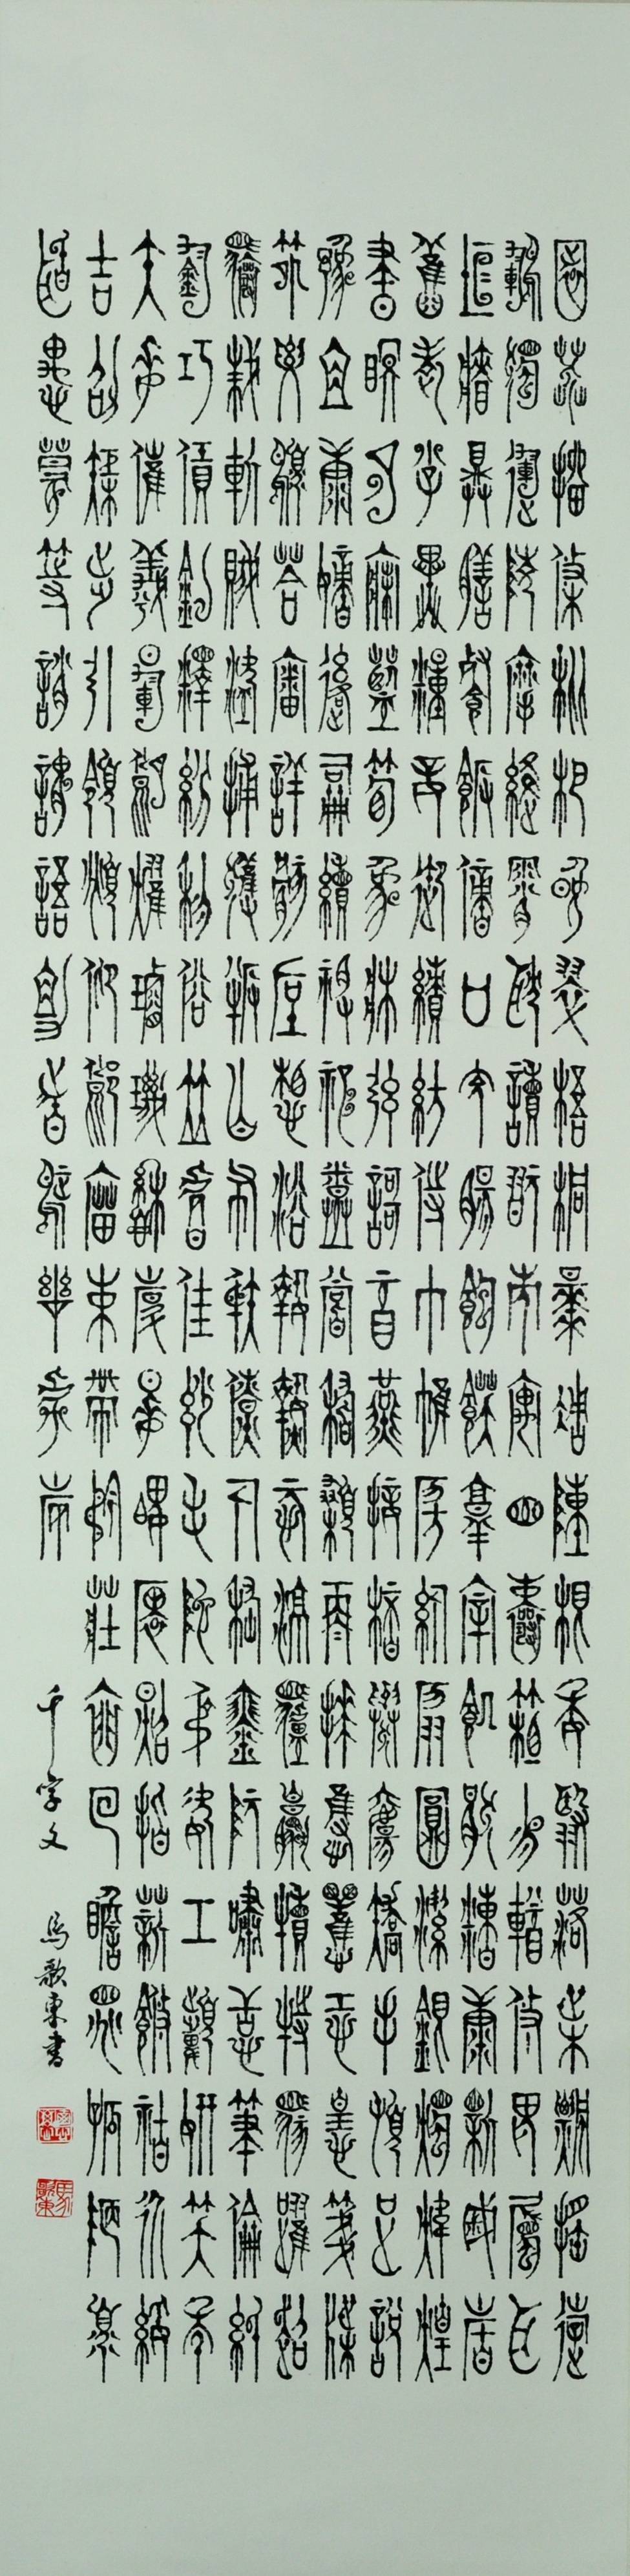 園莽抽條枇杷晚翠梧桐早凋陳根委翳落葉飄搖遊
鵾獨運凌摩絳霄耽讀翫市寓目囊箱易輶攸畏屬耳
垣牆具膳餐飯適口充腸飽飫烹宰飢厭糟糠親戚故
舊老少異糧妾御績紡侍巾帷房紈扇圓潔銀燭煒煌
晝眠夕寐藍筍象床弦歌酒宴接杯舉觴矯手頓足悅
豫且康嫡後嗣續祭祀烝嘗稽顙再拜悚懼恐惶箋牒
簡要顧答審詳骸垢想浴執熱願涼驢騾犢特駭躍超
驤誅斬賊盜捕獲叛亡布射僚丸嵇琴阮嘯恬筆倫紙
鈞巧任釣釋紛利俗並皆佳妙毛施淑姿工顰妍笑年
矢每催曦暉朗曜璇璣懸斡晦魄環照指薪修祜永綏
吉劭矩步引領俯仰廊廟束帶矜莊徘徊瞻眺孤陋寡
聞愚蒙等誚謂語助者焉哉乎也
千字文 馬歌東書